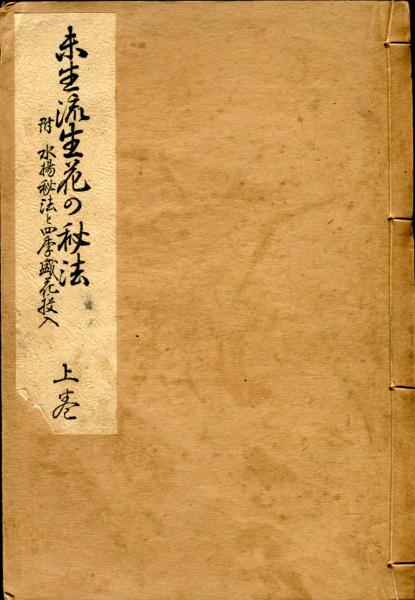 未生流生花の秘法
附 水揚秘法と四季盛花、投入
上巻